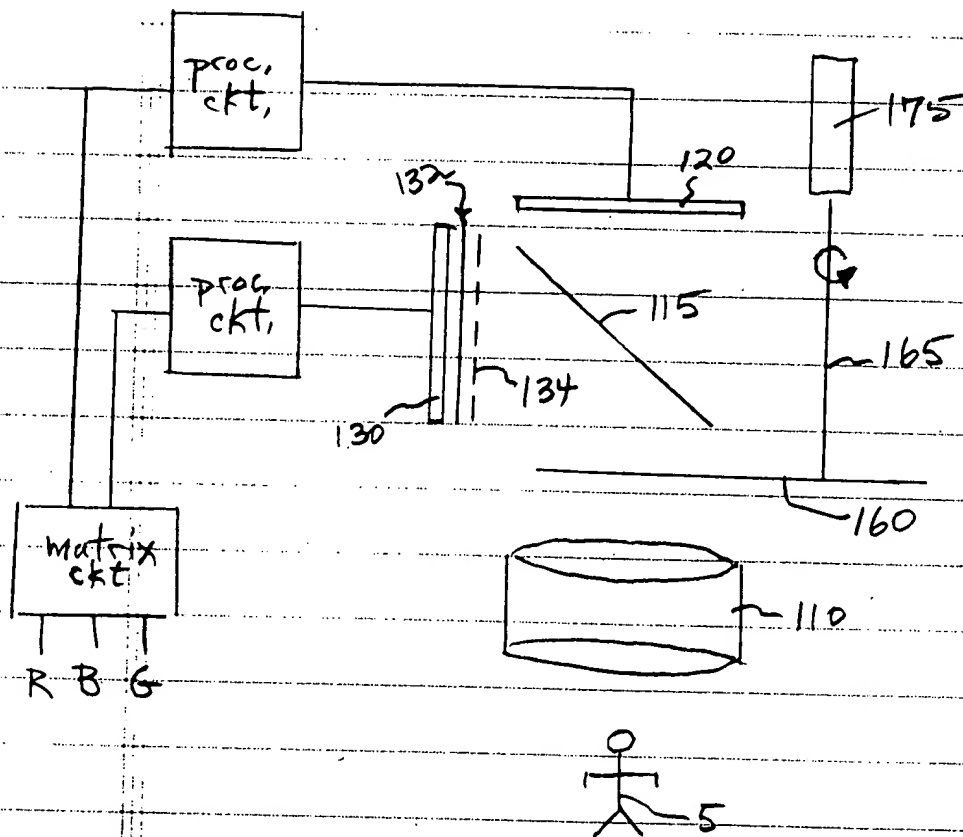 proc.
ckt,
175
120
132
proc,
ckt,
115
165
134
130
160
matrix
ckt
110
R B G
5